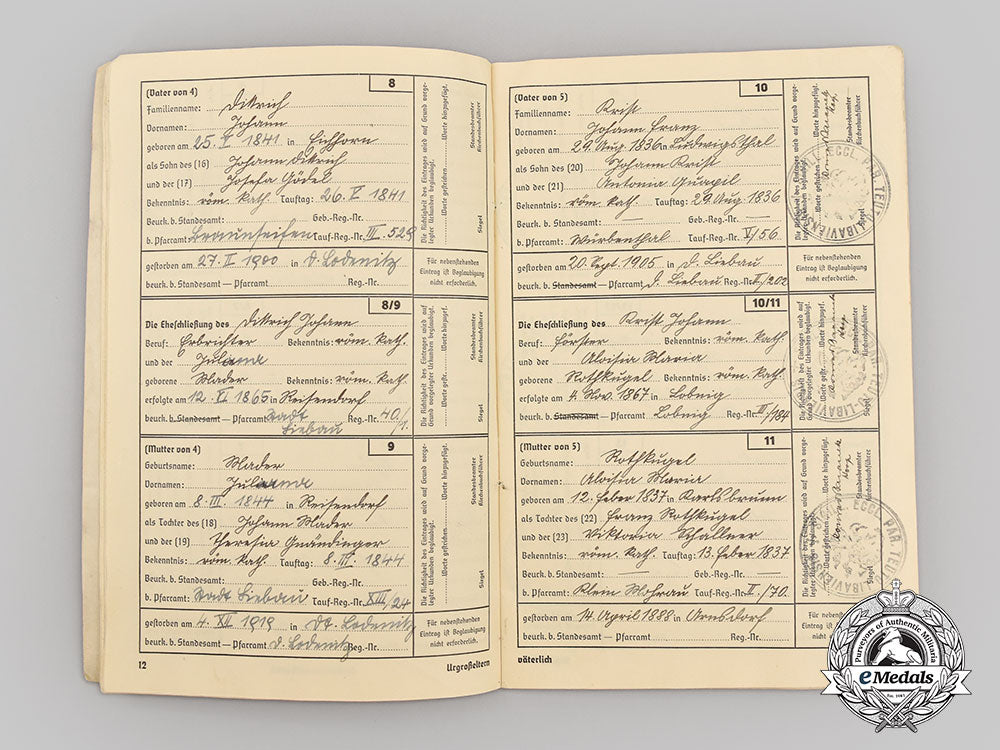 8
(Vater von 4)
Familienname: Ditrich
Vornamen: Johann
geboren am 25. V 1841 in Eichhorn
als Sohn des (16) Johann Ditrich
und der (17) Josefa Gödel
Bekenntnis: röm. kath. Tauftag: 26. V 1841
Beurk. b. Standesamt: Geb.-Reg.-Nr.
b. Pfarramt: Braunseifen Tauf-Reg.-Nr. III. 529
gestorben am 27. II 1900 in D. Lodenitz
beurk. b. Standesamt — Pfarramt Reg.-Nr.
Die Richtigkeit des Eintrages wird auf Grund vorge-
legter Urkunden beglaubigt.
Worte gestrichen. Worte hinzugefügt.
Standesbeamter
Kirchenbuchführer
Siegel
Für nebenstehenden
Eintrag ist Beglaubigung
nicht erforderlich.
8/9
Die Eheschließung des Ditrich Johann
Beruf: Erbrichter Bekenntnis: röm. kath.
und der Juliana
geborene Mader Bekenntnis: röm. kath.
erfolgte am 12. XI 1865 in Reisendorf
beurk. b. Standesamt — Pfarramt Stadt Liebau Reg.-Nr. 40/1.
Die Richtigkeit des Eintrages wird auf
Grund vorgelegter Urkunden beglaubigt.
Worte gestr. Worte hinzugef.
Standesbeamter
Kirchenbuchführer
Siegel
9
(Mutter von 4)
Geburtsname: Mader
Vornamen: Juliana
geboren am 8. III 1844 in Reisendorf
als Tochter des (18) Johann Mader
und der (19) Theresia Gnändinger
Bekenntnis: röm. kath. Tauftag: 8. III. 1844
Beurk. b. Standesamt: Geb.-Reg.-Nr.
b. Pfarramt: Stadt Liebau Tauf-Reg.-Nr. XIII/24
gestorben am 4. XII 1919 in Dt. Lodenitz
beurk. b. Standesamt — Pfarramt D. Lodenitz Reg.-Nr.
Die Richtigkeit des Eintrages wird auf Grund vorge-
legter Urkunden beglaubigt.
Worte gestrichen. Worte hinzugefügt.
Standesbeamter
Kirchenbuchführer
Siegel
Für nebenstehenden
Eintrag ist Beglaubigung
nicht erforderlich.
12
Urgroßeltern
10
(Vater von 5)
Familienname: Krist
Vornamen: Johann Franz
geboren am 29. Aug 1836 in Ludwigsthal
als Sohn des (20) Johann Krist
und der (21) Antonia Quapil
Bekenntnis: röm. kath. Tauftag: 29. Aug 1836
Beurk. b. Standesamt: Geb.-Reg.-Nr.
b. Pfarramt: Würbenthal Tauf-Reg.-Nr. V/56
gestorben am 20. Sept. 1905 in D. Liebau
beurk. b. Standesamt — Pfarramt D. Liebau Reg.-Nr. II/202
Die Richtigkeit des Eintrages wird auf Grund vorge-
legter Urkunden beglaubigt.
Worte gestrichen. Worte hinzugefügt.
Standesbeamter
Kirchenbuchführer
Siegel
Für nebenstehenden
Eintrag ist Beglaubigung
nicht erforderlich.
10/11
Die Eheschließung des Krist Johann
Beruf: Förster Bekenntnis: röm. kath.
und der Aloisia Maria
geborene Rothkugel Bekenntnis: röm. kath.
erfolgte am 4. Nov. 1867 in Lobnig
beurk. b. Standesamt — Pfarramt Lobnig Reg.-Nr. III/184
Die Richtigkeit des Eintrages wird auf
Grund vorgelegter Urkunden beglaubigt.
Worte gestr. Worte hinzugef.
Standesbeamter
Kirchenbuchführer
Siegel
11
(Mutter von 5)
Geburtsname: Rothkugel
Vornamen: Aloisia Maria
geboren am 12. Feber 1837 in Karlsbrunn
als Tochter des (22) Franz Rothkugel
und der (23) Viktoria Schallner
Bekenntnis: röm. kath. Tauftag: 13. Feber 1837
Beurk. b. Standesamt: Geb.-Reg.-Nr.
b. Pfarramt: Klein Mohrau Tauf-Reg.-Nr. II./70.
gestorben am 14. April 1888 in Arnsdorf
beurk. b. Standesamt — Pfarramt Reg.-Nr.
Die Richtigkeit des Eintrages wird auf Grund vorge-
legter Urkunden beglaubigt.
Worte gestrichen. Worte hinzugefügt.
Standesbeamter
Kirchenbuchführer
ECCL. PAR. TEUT. LIBAVIENS
Für nebenstehenden
Eintrag ist Beglaubigung
väterlich
Purveyors of Authentic Militaria
eMedals